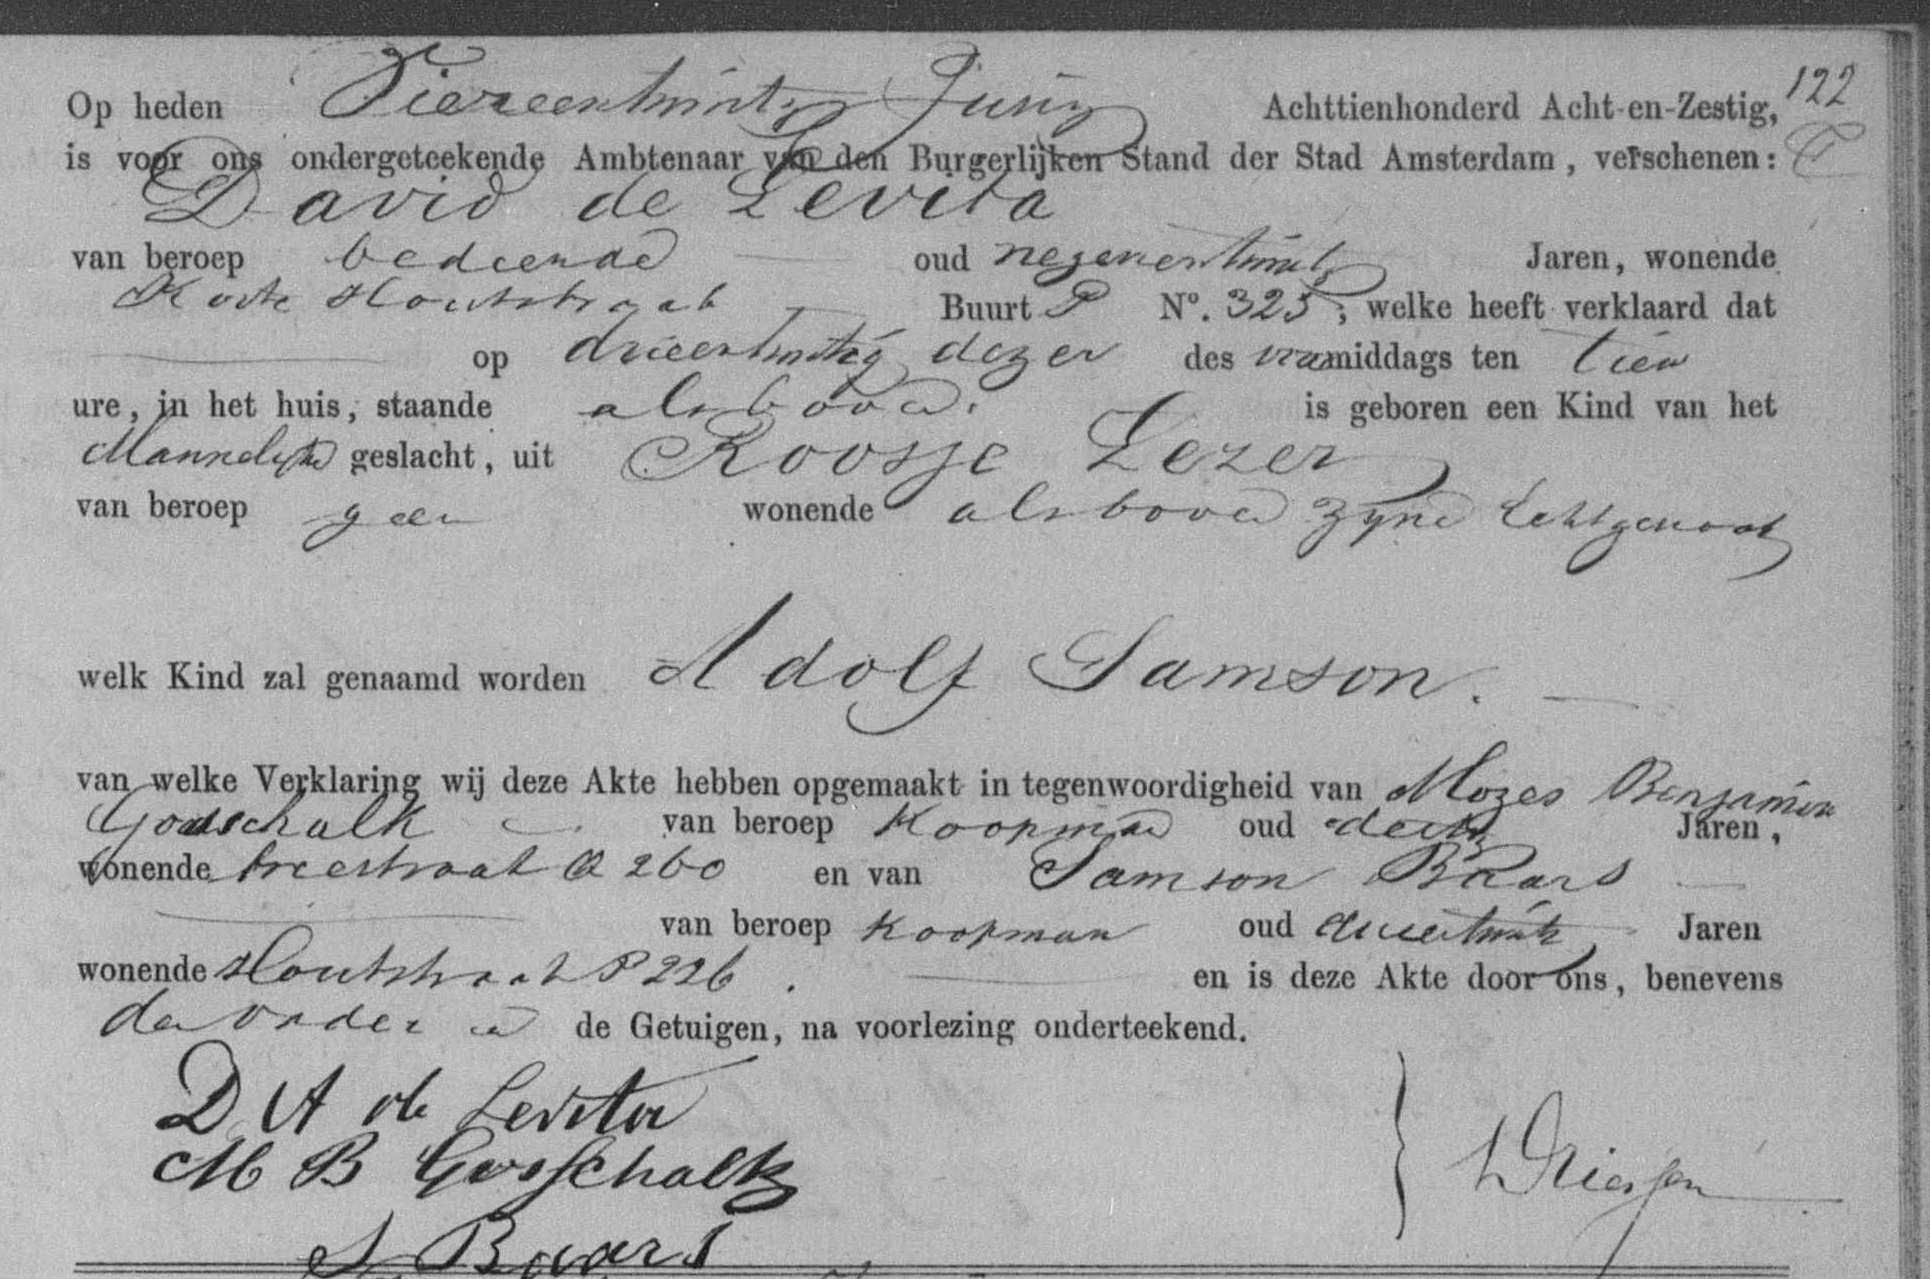 122
Op heden Vierentwintig Junij Achttienhonderd Acht-en-Zestig,
is voor ons ondergeteekende Ambtenaar van den Burgerlijken Stand der Stad Amsterdam, verschenen:
David de Levita
van beroep bediende oud negenentwintig Jaren, wonende
Korte Houtstraat Buurt P No. 325, welke heeft verklaard dat
op drieentwintig dezer des voormiddags ten tien
ure, in het huis, staande als boven. is geboren een Kind van het
Mannelijk geslacht, uit Roosje Lezer
van beroep geen wonende als boven zijne Echtgenoot
welk Kind zal genaamd worden Adolf Samson.
van welke Verklaring wij deze Akte hebben opgemaakt in tegenwoordigheid van Mozes Benjamin
Godschalk van beroep Koopman oud dertig Jaren,
wonende breestraat Q 260 en van Samson Baars
van beroep Koopman oud drieentwintig Jaren
wonende Houtstraat P 226. en is deze Akte door ons, benevens
den vader en de Getuigen, na voorlezing onderteekend.
D A de Levita
M B Gosschalk
S Baars